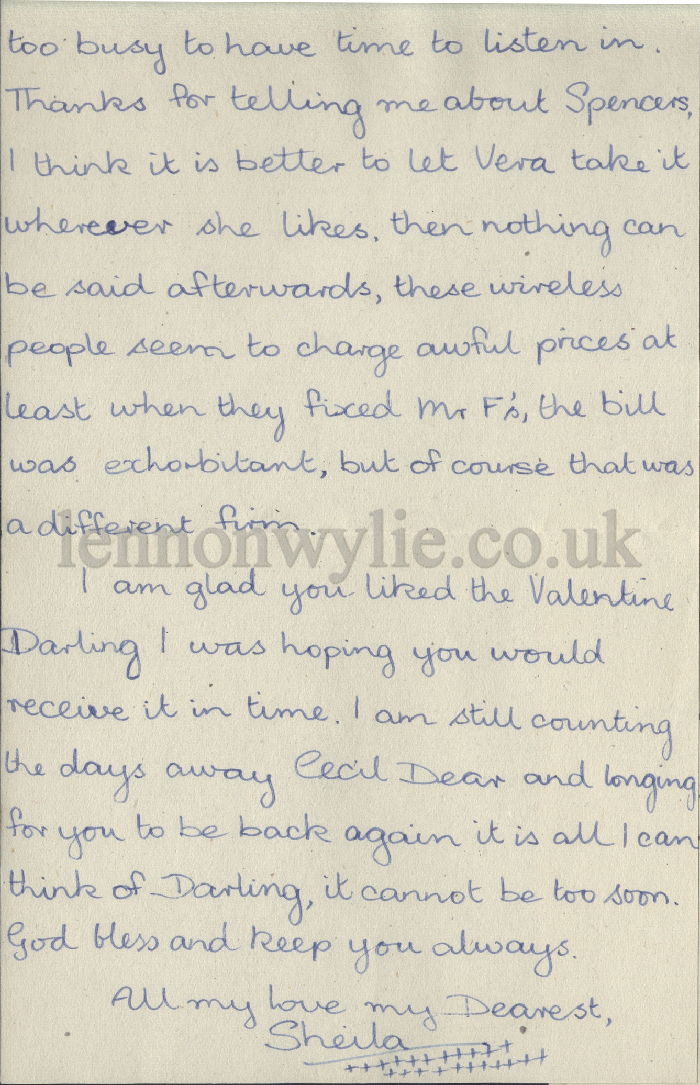 too busy to have time to listen in.
Thanks for telling me about Spencers,
I think it is better to let Vera take it
wherever she likes, then nothing can
be said afterwards, these wireless
people seem to charge awful prices at
least when they fixed Mr F's, the bill
was exhorbitant, but of course that was
a different firm.
lennonwylie.co.uk
I am glad you liked the Valentine
Darling I was hoping you would
receive it in time. I am still counting
the days away Cecil Dear and longing
for you to be back again it is all I can
think of Darling, it cannot be too soon.
God bless and keep you always.
All my love my Dearest,
Sheila
+++++++++++
++++++++++